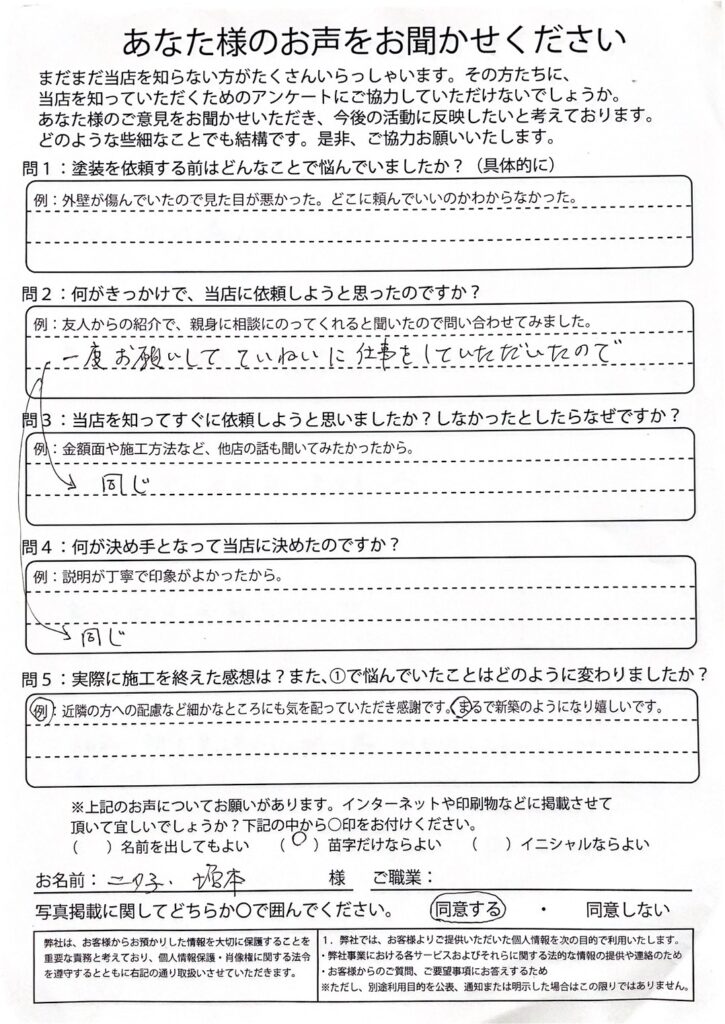 あなた様のお声をお聞かせください
まだまだ当店を知らない方がたくさんいらっしゃいます。その方たちに、
当店を知っていただくためのアンケートにご協力していただけないでしょうか。
あなた様のご意見をお聞かせいただき、今後の活動に反映したいと考えております。
どのような些細なことでも結構です。是非、ご協力お願いいたします。
問1：塗装を依頼する前はどんなことで悩んでいましたか？（具体的に）
例：外壁が傷んでいたので見た目が悪かった。どこに頼んでいいのかわからなかった。
問2：何がきっかけで、当店に依頼しようと思ったのですか？
例：友人からの紹介で、親身に相談にのってくれると聞いたので問い合わせてみました。
一度お願いして ていねいに仕事をしていただいたので
問3：当店を知ってすぐに依頼しようと思いましたか？しなかったとしたらなぜですか？
例：金額面や施工方法など、他店の話も聞いてみたかったから。
同じ
問4：何が決め手となって当店に決めたのですか？
例：説明が丁寧で印象がよかったから。
同じ
問5：実際に施工を終えた感想は？また、①で悩んでいたことはどのように変わりましたか？
例：近隣の方への配慮など細かなところにも気を配っていただき感謝です。まるで新築のようになり嬉しいです。
※上記のお声についてお願いがあります。インターネットや印刷物などに掲載させて
頂いて宜しいでしょうか？下記の中から○印をお付けください。
（　）名前を出してもよい　（○）苗字だけならよい　（　）イニシャルならよい
お名前： 塚本 様 ご職業：
写真掲載に関してどちらか○で囲んでください。 同意する ・ 同意しない
弊社は、お客様からお預かりした情報を大切に保護することを
重要な責務と考えており、個人情報保護・肖像権に関する法令
を遵守するとともに右記の通り取扱いさせていただきます。
1．弊社では、お客様よりご提供いただいた個人情報を次の目的で利用いたします。
・弊社事業における各サービスおよびそれらに関する法的な情報の提供や連絡のため
・お客様からのご質問、ご要望事項にお答えするため
※ただし、別途利用目的を公表、通知または明示した場合はこの限りではありません。